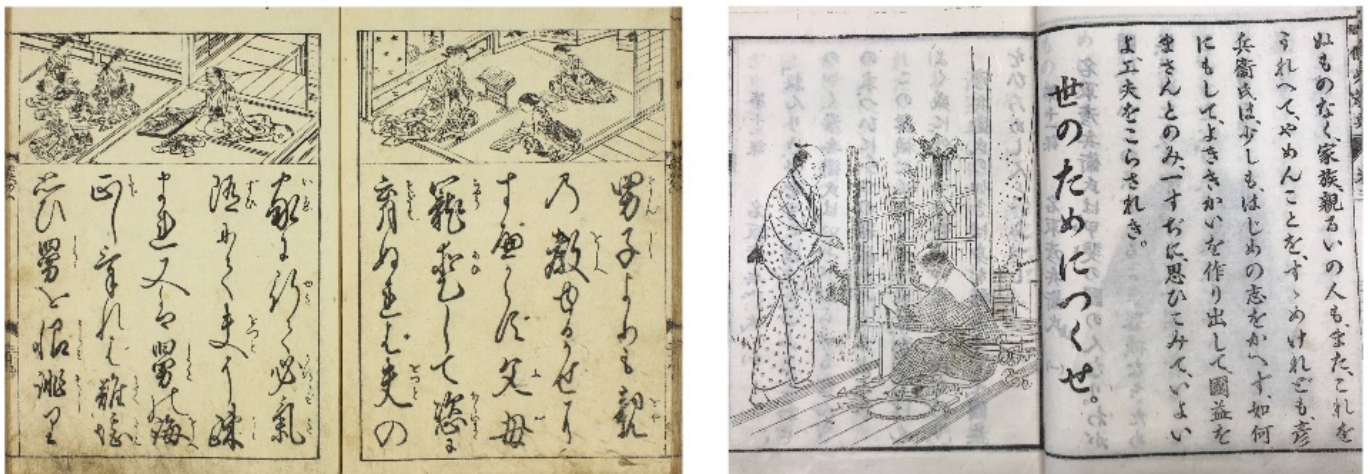 男子よりも親
の教ゆるがせに
すべからず父母
寵愛して恣に
育ぬれば夫の
家に行て必氣
随にて夫に疎
まれ又は舅の誨
正しければ難堪
思ひ舅を恨誹り
ぬものなく、家族親るいの人も、また、これを
うれへて、やめんことを、すゝめけれども、彦
兵衞氏は、少しも、はじめの志をかへず、如何
にもして、よききかいを作り出して、國益を
まさんとのみ、一すぢに思ひこみて、いよい
よ、工夫をこらされき。
世のためにつくせ。